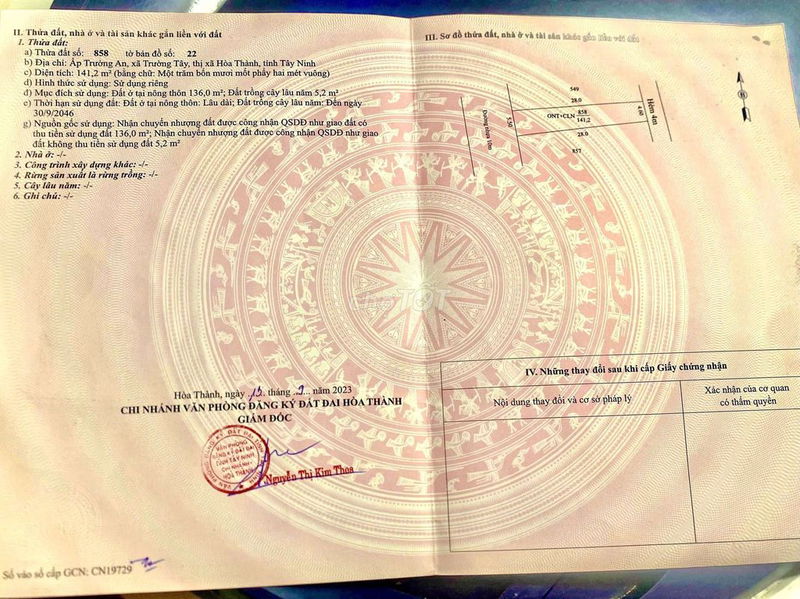 II. Thửa đất, nhà ở và tài sản khác gắn liền với đất
1. Thửa đất:
a) Thửa đất số: 858 tờ bản đồ số: 22
b) Địa chỉ: Ấp Trường An, xã Trường Tây, thị xã Hòa Thành, tỉnh Tây Ninh
c) Diện tích: 141,2 m² (bằng chữ: Một trăm bốn mươi mốt phẩy hai mét vuông)
d) Hình thức sử dụng: Sử dụng riêng
đ) Mục đích sử dụng: Đất ở tại nông thôn 136,0 m²; Đất trồng cây lâu năm 5,2 m²
e) Thời hạn sử dụng đất: Đất ở tại nông thôn: Lâu dài; Đất trồng cây lâu năm: Đến ngày
30/9/2046
g) Nguồn gốc sử dụng: Nhận chuyển nhượng đất được công nhận QSDĐ như giao đất có
thu tiền sử dụng đất 136,0 m²; Nhận chuyển nhượng đất được công nhận QSDĐ như giao
đất không thu tiền sử dụng đất 5,2 m²
2. Nhà ở: -/-
3. Công trình xây dựng khác: -/-
4. Rừng sản xuất là rừng trồng: -/-
5. Cây lâu năm: -/-
6. Ghi chú: -/-
Hòa Thành, ngày 13 tháng 2 năm 2023
CHI NHÁNH VĂN PHÒNG ĐĂNG KÝ ĐẤT ĐAI HÒA THÀNH
GIÁM ĐỐC
VĂN PHÒNG
ĐĂNG KÝ ĐẤT ĐAI
TỈNH TÂY NINH
CHI NHÁNH
HÒA THÀNH
Nguyễn Thị Kim Thoa
Số vào sổ cấp GCN: CN19729
III. Sơ đồ thửa đất, nhà ở và tài sản khác gắn liền với đất
549
28.0
Đường nhựa 10m
5.50
ONT+CLN 858
141,2
4.60
Hẻm 4m
28.0
857
B
CHỢ TỐT
IV. Những thay đổi sau khi cấp Giấy chứng nhận
Nội dung thay đổi và cơ sở pháp lý
Xác nhận của cơ quan
có thẩm quyền